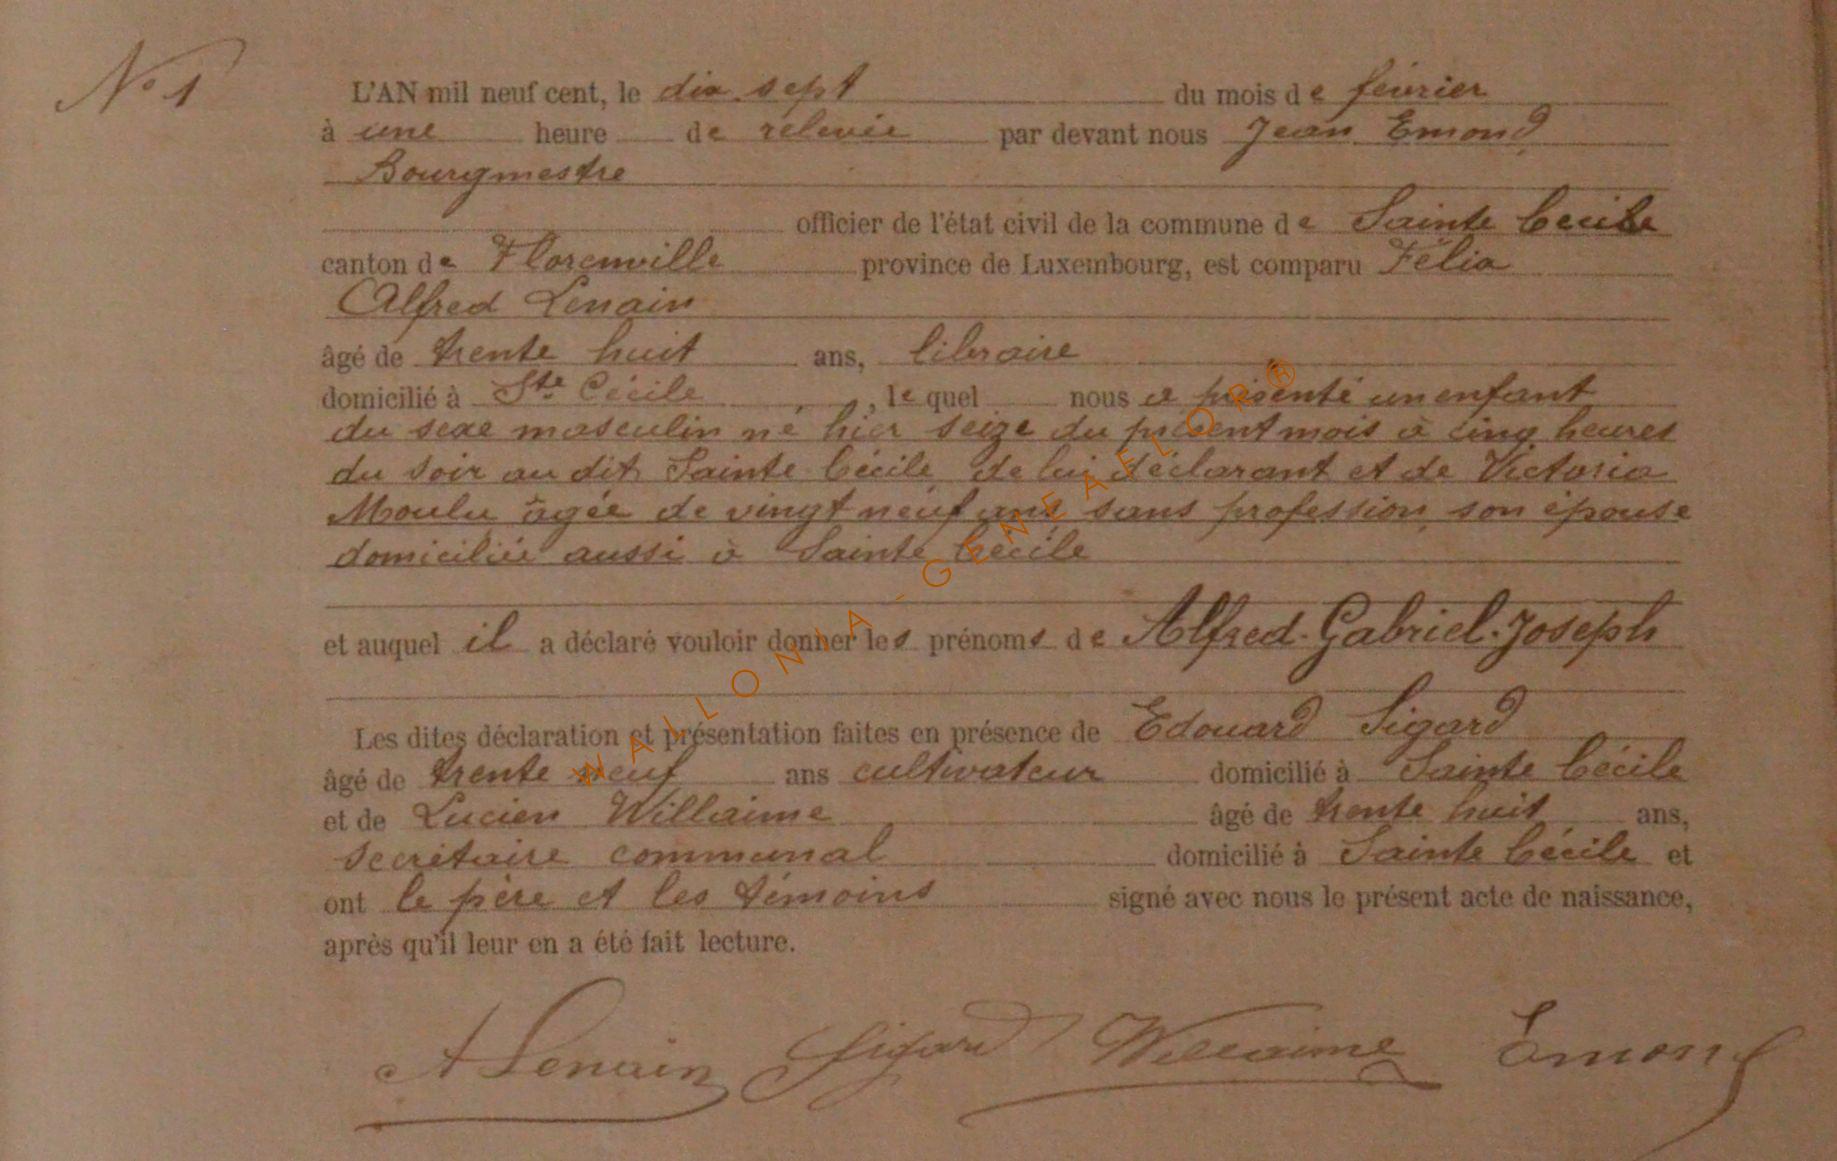 N° 1
L'AN mil neuf cent, le dix sept du mois de février
à une heure de relevée par devant nous Jean Emond,
Bourgmestre
officier de l'état civil de la commune de Sainte Cécile
canton de Florenville province de Luxembourg, est comparu Félix
Alfred Lenain
âgé de trente huit ans, libraire
domicilié à Ste Cécile, lequel nous a présenté un enfant
du sexe masculin né hier seize du présent mois à cinq heures
du soir au dit Sainte Cécile de lui déclarant et de Victoria
Moulu âgée de vingt neuf ans sans profession, son épouse
domiciliée aussi à Sainte Cécile
et auquel il a déclaré vouloir donner les prénoms de Alfred-Gabriel-Joseph
Les dites déclaration et présentation faites en présence de Edouard Sigard
âgé de trente neuf ans cultivateur domicilié à Sainte Cécile
et de Lucien Willaime âgé de trente huit ans,
secrétaire communal domicilié à Sainte Cécile et
ont le père et les témoins signé avec nous le présent acte de naissance,
après qu'il leur en a été fait lecture.
A Lenain Sigard Willaime Emond
WALLONIA-GENEAFLOR®